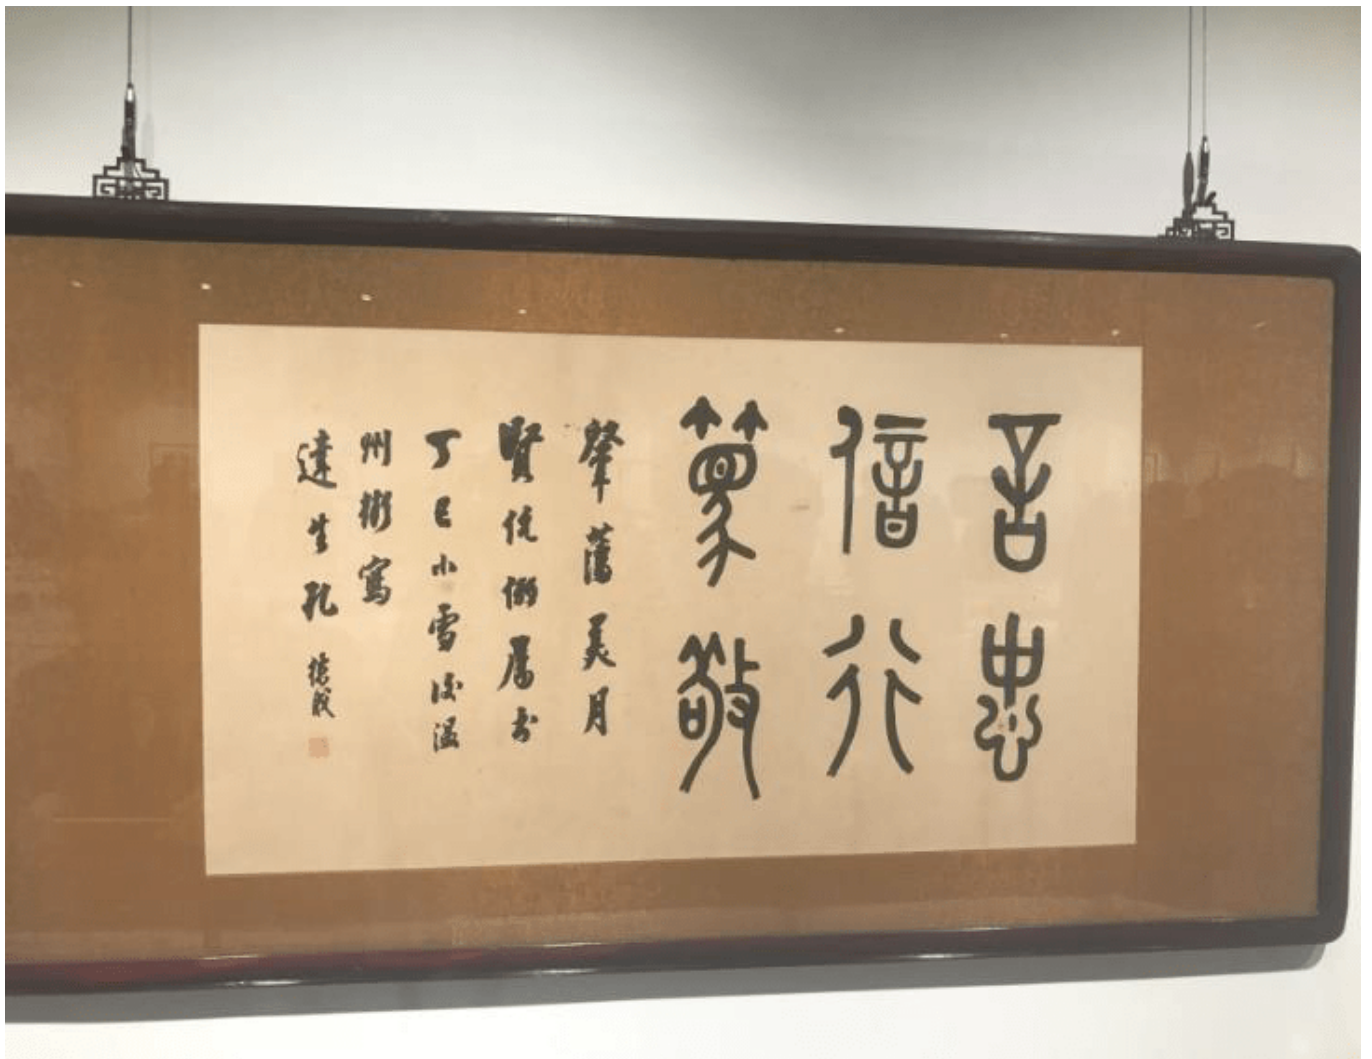 言忠
信行
篤敬
肇美月
賢伉儷屬書
丁巳小雪後温
州街寓
達生孔德成